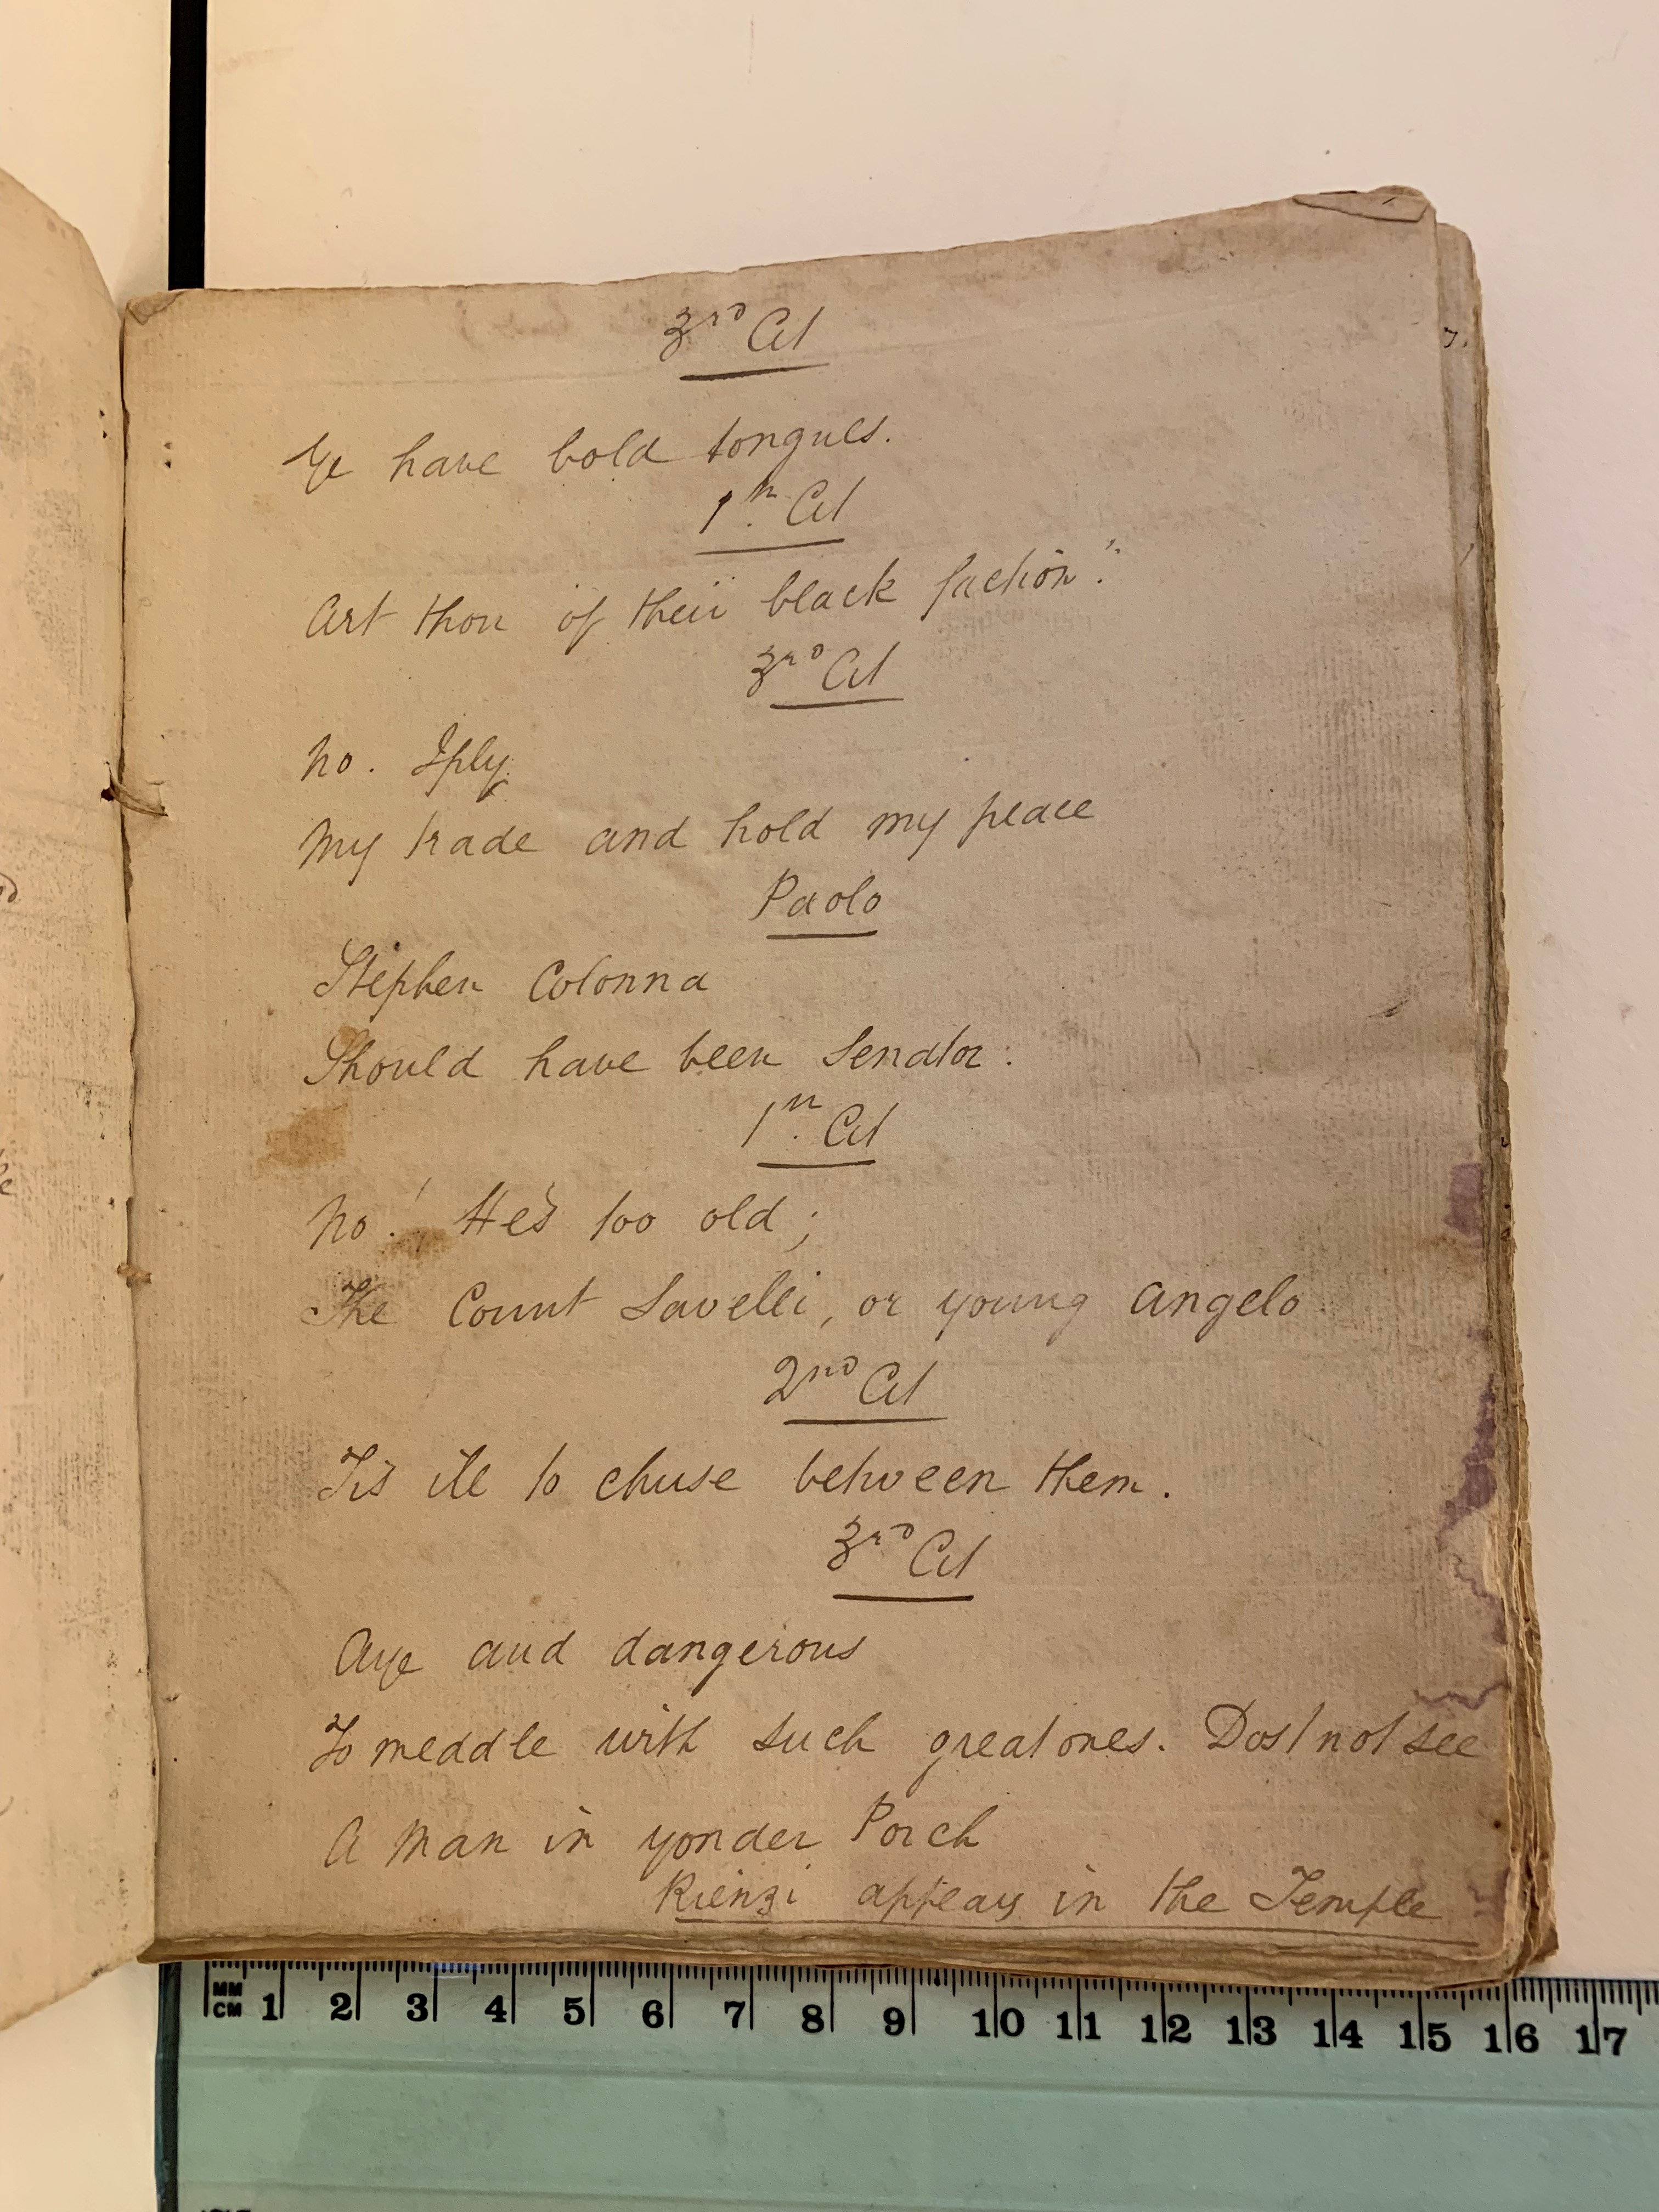 3rd Cit
Ye have bold tongues.
1st. Cit
Art thou of their black faction?
3rd Cit
No. I ply
My trade and hold my peace
Paolo
Stephen Colonna
Should have been Senator.
1st. Cit
No! He's too old;
The Count Savelli, or young Angelo
2nd Cit
Tis ill to chuse between them.
3rd Cit
Aye and dangerous
To meddle with such great ones. Dost not see
A Man in yonder Porch
Rienzi appears in the Temple
MM
CM 1 2 3 4 5 6 7 8 9 10 11 12 13 14 15 16 17